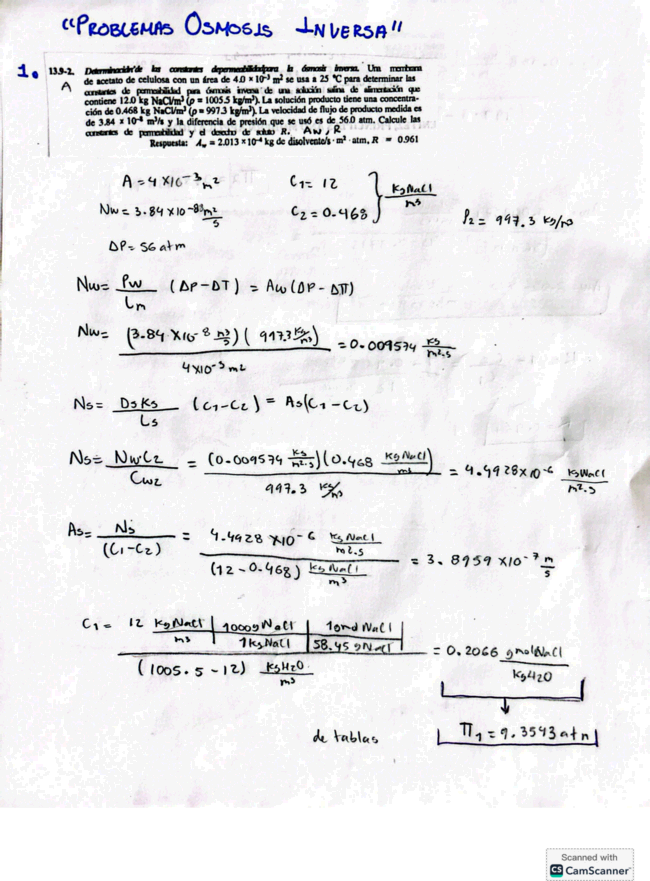 "PROBLEMAS OSMOSIS INVERSA"
1. 13.9-2. Determinación de las constantes de permeabilidad para la ósmosis inversa. Una membrana
A de acetato de celulosa con un área de 4.0 × 10⁻³ m² se usa a 25 °C para determinar las
constantes de permeabilidad para ósmosis inversa de una solución salina de alimentación que
contiene 12.0 kg NaCl/m³ (ρ = 1005.5 kg/m³). La solución producto tiene una concentra-
ción de 0.468 kg NaCl/m³ (ρ = 997.3 kg/m³). La velocidad de flujo de producto medida es
de 3.84 × 10⁻⁸ m³/s y la diferencia de presión que se usó es de 56.0 atm. Calcule las
constantes de permeabilidad y el desecho de soluto R. Aw, R
Respuesta: A_w = 2.013 × 10⁻⁴ kg de disolvente/s · m² · atm, R = 0.961
A = 4 x10⁻³ m² C₁ = 12 } KgNaCl/m³
Nw = 3.84 x10⁻⁸ m²/s C₂ = 0.468 ρ₂ = 997.3 Kg/m³
ΔP = 56 atm
Nw = Pw/Lm (ΔP - ΔT) = Aw (ΔP - ΔΠ)
Nw = (3.84 x10⁻⁸ m³/s)(997.3 Kg/m³) / 4x10⁻³ m² = 0.009574 Kg/m².s
Ns = DsKs/Ls (C₁-C₂) = As(C₁-C₂)
Ns = NwC₂/Cw₂ = (0.009574 Kg/m².s)(0.468 KgNaCl/m³) / 997.3 Kg/m³ = 4.4928x10⁻⁶ KgNaCl/m².s
As = Ns/(C₁-C₂) = 4.4928 x10⁻⁶ KgNaCl/m².s / (12-0.468) KgNaCl/m³ = 3.8959 x10⁻⁷ m/s
C₁ = 12 KgNaCl/m³ | 1000gNaCl/1KgNaCl | 1omol NaCl/58.45gNaCl / (1005.5-12) KgH2O/m³ = 0.2066 gmolNaCl/KgH2O
de tablas Π₁ = 9.3543 atm
Scanned with
CS CamScanner